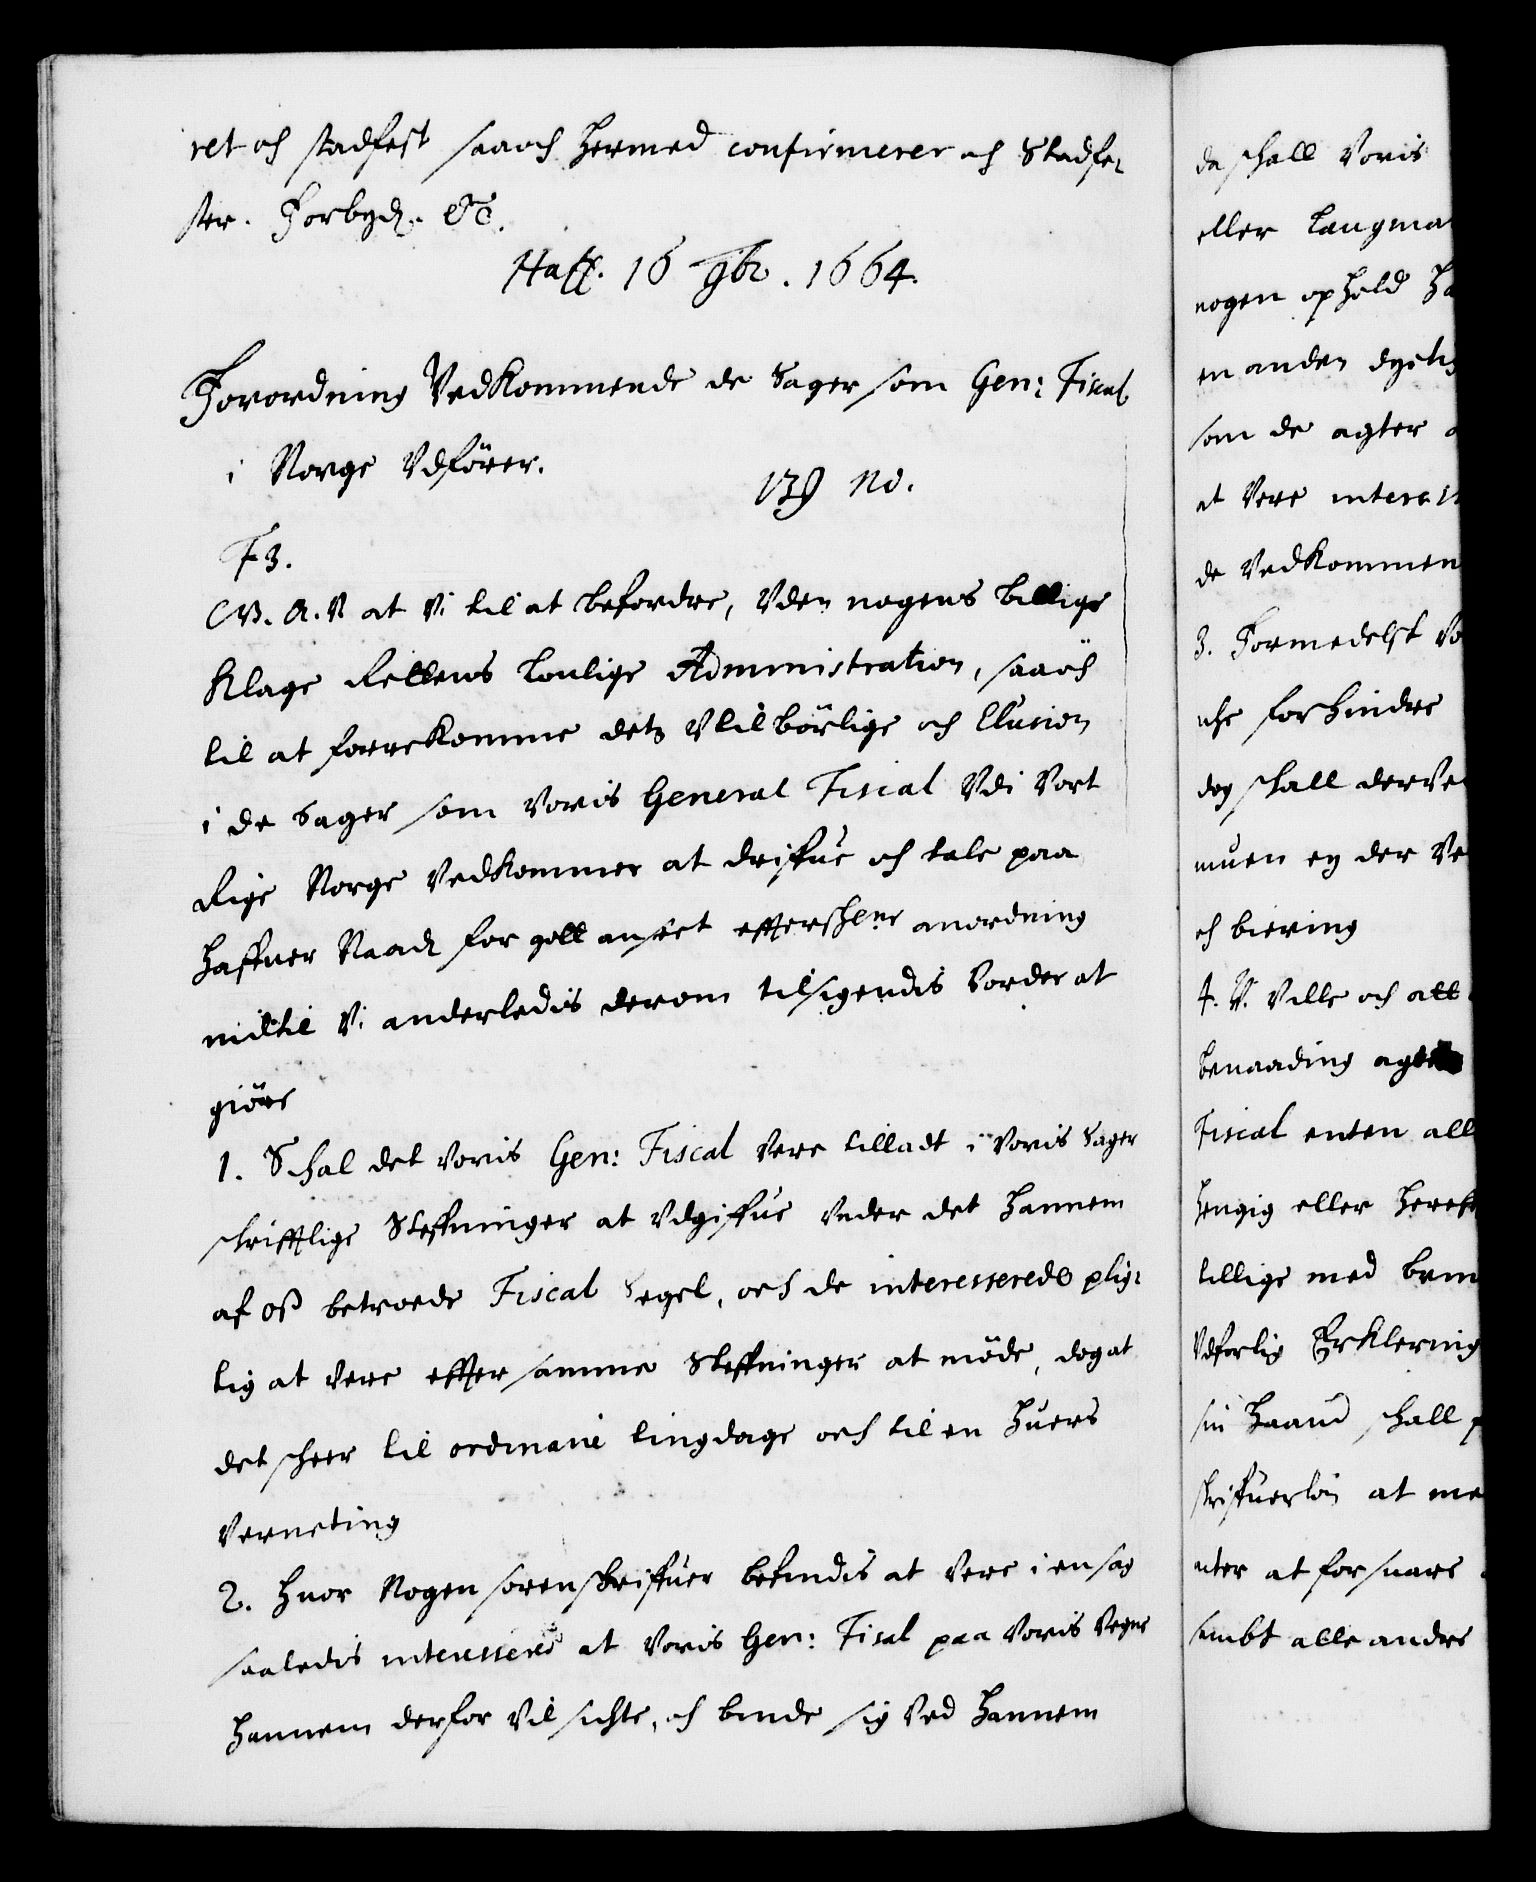 ret och stadfest saa och hermed confirmerer och Stadfe-
ster. Forbyd. &c.
Haff. 16 9br. 1664.
Forordning Vedkommende de Sager som Gen: Fiscal
i Norge Vdfører.
139 No.
F 3.
G. A. V. at Vi til at befordre, Vden nogens billige
Klage Rettens loulige Administration, saa och
til at forrekomme dets Vtilbörlige och Elusion
i de Sager som Voris General Fiscal Vdi Vort
Rige Norge Vedkommer at drifue och tale paa
haffuer Naad. for got anseet effterskrne anordning
indtil Vi anderledis derom tilsigendis Vorder at
giöre
1. Schal det Voris Gen: Fiscal Vere tilladt i Voris Sager
schrifftlige Steffninger at Vdgiffue Vnder det hannem
af oß betroede Fiscal Segel, och de interesserede plig-
tig at Vere effter samme Steffninger at möde, dog at
det scheer til ordinarie tingdage och til en huers
Verneting
2. Huor Nogen sorenskriffuer befindis at Vere i en sag
saaledis interessered at Voris Gen: Fiscal paa Voris Vegne
hannem derfor Vil sichte, och binde sig Ved hannem
da schall Voris
eller Laugma
nogen ophold ha
en anden dyctig
som de agter
at Vere interess
de Vedkommen
3. Formedelst Vo
forhindre
dog schall derVe
muen ey der Ve
och biering
4. V. Ville och att
benaading agt
Fiscal enten all
hengig eller hereft
tillige med bem
Vdforlig Erklering
sin haand schall p
skriffuerløn at me
nter at forsuare
sambt alle andre